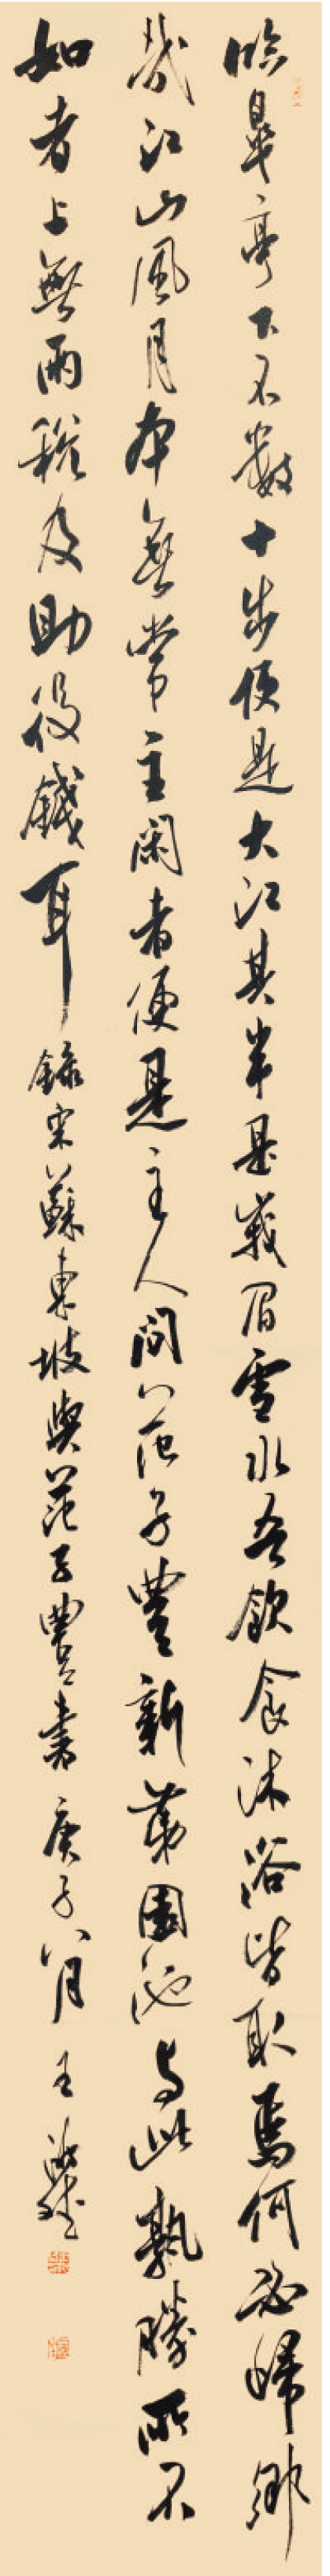 臨皋亭下不數十步便是大江其半是峩眉雪水吾飲食沐浴皆取焉何必歸鄉
哉江山風月本無常主閑者便是主人問范子豐新第園池與此孰勝所不
如者上無兩稅及助役錢耳錄宋蘇東坡與范子豐書庚子八月王